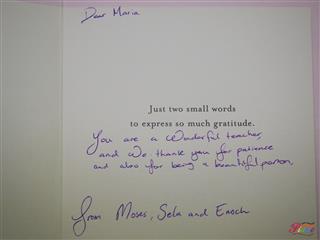 Dear Maria
Just two small words
to express so much gratitude.
You are a Wonderful teacher,
and We thank you for patience
and also for being a beautiful person,
from Moses, Sela and Enoch